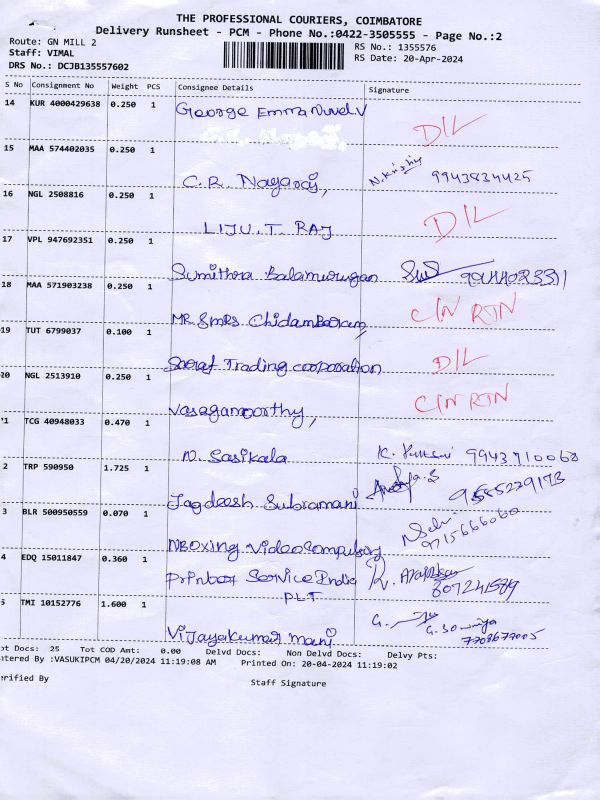 THE PROFESSIONAL COURIERS, COIMBATORE
Delivery Runsheet - PCM - Phone No.:0422-3505555 - Page No.:2
Route: GN MILL 2 RS No.: 1355576
Staff: VIMAL RS Date: 20-Apr-2024
DRS No.: DCJB135557602
S No Consignment No Weight PCS Consignee Details Signature
14 KUR 4000429638 0.250 1 George Emmanuvel.V D/L
15 MAA 574402035 0.250 1 C.R. Nagaraj, 9943834425
16 NGL 2508816 0.250 1 LIJU.T. RAJ D/L
17 VPL 947692351 0.250 1 Sumithra Balamurugan
18 MAA 571903238 0.250 1 MR SMRS Chidambaram, C/N RTN
19 TUT 6799037 0.100 1 Saraf Trading cooporation D/L
20 NGL 2513910 0.250 1 Vasagamoorthy, C/N RTN
21 TCG 40948033 0.470 1 N. Sasikala 9943710068
2 TRP 590950 1.725 1 Jagdeesh Subramani 9585229173
3 BLR 500950559 0.070 1 NBoxing Video 9715666060
4 EDQ 15011847 0.360 1 Printer Service India P.L.T
5 TMI 10152776 1.600 1 Vijayakumar mani G. Sowmya 7708677005
ot Docs: 25 Tot COD Amt: 0.00 Delvd Docs: Non Delvd Docs: Delvy Pts:
ntered By :VASUKIPCM 04/20/2024 11:19:08 AM Printed On: 20-04-2024 11:19:02
erified By Staff Signature